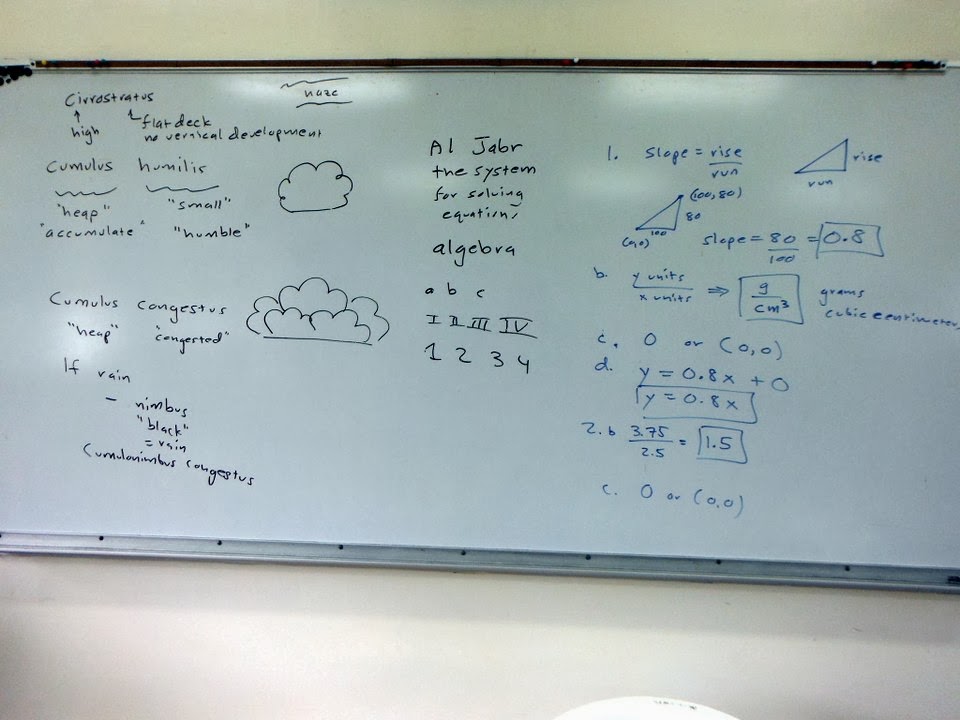 haze
Cirrostratus
high
flat deck
no vernical development
Cumulus humilis
"heap" "small"
"accumulate" "humble"
Cumulus congestus
"heap" "congested"
If rain
- nimbus
"black"
= rain
Cumulonimbus congestus
Al Jabr
the system
for solving
equations
algebra
a b c
I II III IV
1 2 3 4
1. slope = rise
run
rise
run
(100, 80)
80
100
(0,0)
slope = 80 = 0.8
100
b. y units ⇒ g grams
x units cm³ cubic centimeters
c. 0 or (0,0)
d. y = 0.8x + 0
y = 0.8x
2.b 3.75 = 1.5
2.5
c. 0 or (0,0)